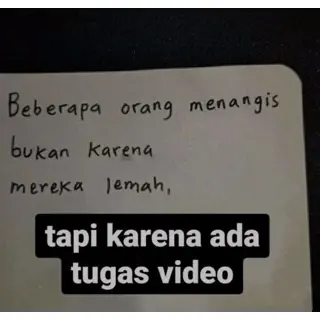 Beberapa orang menangis
bukan karena
mereka lemah,
tapi karena ada
tugas video